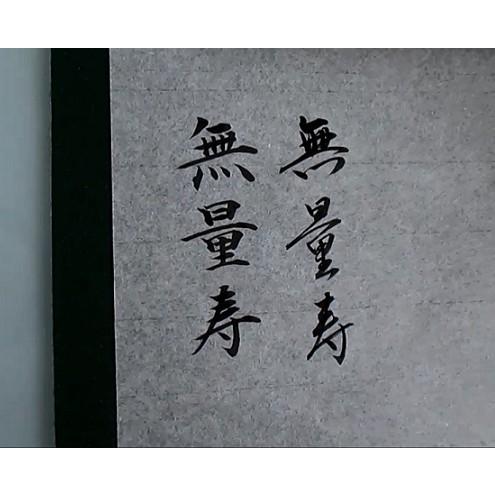 無量寿
無量寿